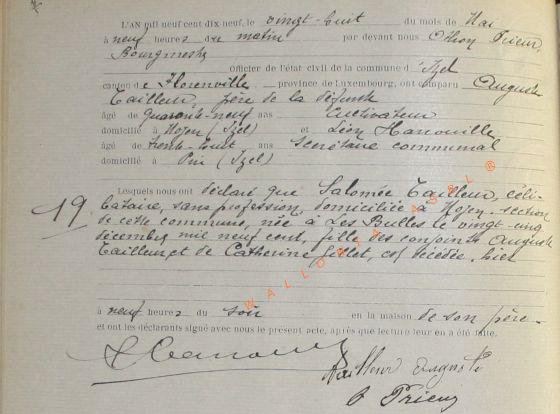 L'AN mil neuf cent dix neuf, le vingt-huit du mois de Mai
à neuf heures du matin par devant nous Othon Prieur,
Bourgmestre
officier de l'état civil de la commune d'Izel
canton de Florenville, province de Luxembourg, ont comparu Auguste
Tailleur, père de la défunte
âgé de quarante-neuf ans Cultivateur
domicilié à Moyen (Izel) et Léon Hanouille
âgé de trente-huit ans secrétaire communal
domicilié à Pin (Izel)
Lesquels nous ont déclaré que Salomée Tailleur, céli-
19 bataire, sans profession, domiciliée à Moyen - section
de cette commune, née à Les Bulles le vingt-cinq
décembre mil neuf cent, fille des conjoints Auguste
Tailleur et de Catherine Gillet, est décédée hier
WALLONIA ASBL ®
à neuf heures du soir en la maison de son père
et ont les déclarants signé avec nous le présent acte, après que lecture leur en a été faite.
Tailleur Auguste
O Prieur